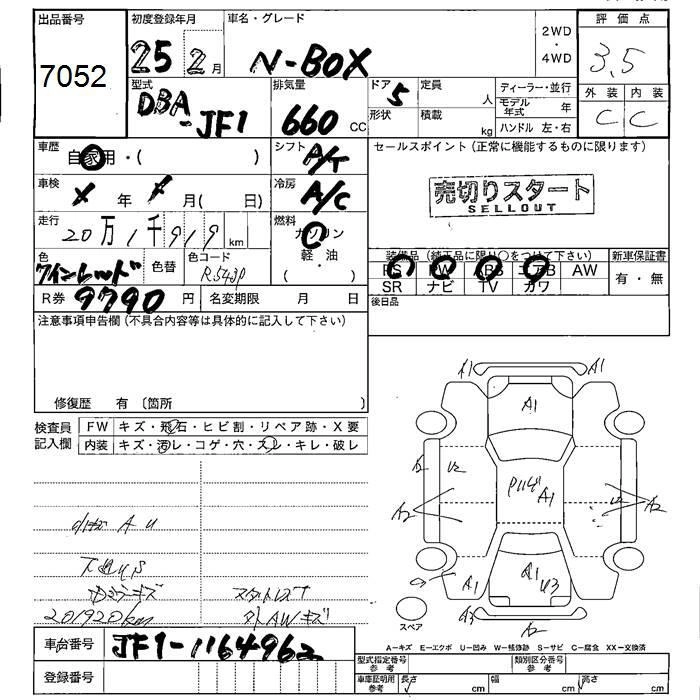 出品番号 初度登録年月 車名・グレード 評価点
7052 25年2月 N-BOX 2WD・4WD 3.5
型式 排気量 ドア 定員 ディーラー・並行 外装 内装
DBA-JF1 660cc 5 人 モデル年式 年 C C
形状 積載 kg ハンドル 左・右
車歴 自家用・( ) シフト A/T セールスポイント(正常に機能するものに限ります)
車検 X年 月( 日) 冷房 A/C 売切りスタート
SELLOUT
走行 20万1千919km 燃料 ガソリン
軽・油
( )
色 ワインレッド 色替 色コード R543P 装備品(純正品に限り○をつけて下さい) 新車保証書
PS PW ABS エアB AW 有・無
R券 9790円 名変期限 月 日 SR ナビ TV カワ
注意事項申告欄(不具合内容等は具体的に記入して下さい) 後日品
修復歴 有〔箇所 〕
検査員 FW キズ・飛石・ヒビ割・リペア跡・X要
記入欄 内装 キズ・汚レ・コゲ・穴・スレ・キレ・破レ
A1 A1
A1
A2 U2 A1 U2 A2
A2
A U
A1 A1 U3
キズ スタットレス
201920km 外AWキズ A3 A2
スペア
車台番号 JF1-1164962
A-キズ E-エクボ U-凹み W-補修跡 S-サビ C-腐食 XX-交換済
登録番号 型式指定番号 参考 類別区分番号 参考
車庫証明用 参考 長さ cm 幅 cm 高さ cm